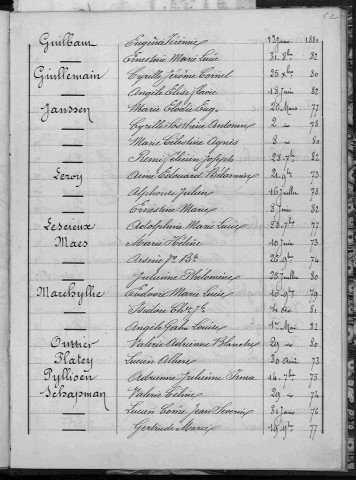 Guilbaut Eugénie Irénée 12 9bre 1881
— Ernestine Marie Lucie 31 8bre 82
Guillemain Cyrille Jérôme Cornel 25 Xbre 80
— Angèle Elise Marie 18 Juin 82
Janssen Marie Elodie Eug. 22 Mars 77
— Cyrille Antoine 2 — 78
— Marie Célestine Agnès 8 — 80
— Remi Félicien Joseph 28 7bre 82
Leroy Aimé Edouard Bélarmin 21 9bre 73
— Alphonse Julien 16 Juillet 78
— Ernestine Marie 8 Juin 82
Leserieux Adolphine Marie Louise 77
Maes Marie Hélène 10 Juin 73
— Arsène Jn Bte 26 9bre 74
— Julienne Philomène 23 Juillet 80
Marchyllie Ludovic Marie Louis 10 9bre 79
— Isidore 81
— Angèle Gab. Louise 1er Mai 82
Outtier Valérie Adrienne Blanche 29 — 80
Platey Lucien Albert 30 Avril 73
Pyllisen Adrienne Julienne Irma 14 7bre 75
Schapman Valérie Céline 29 — 74
— Lucien Côme Jean Séverin 30 Juin 76
— Gertrude Marie 19 9bre 77